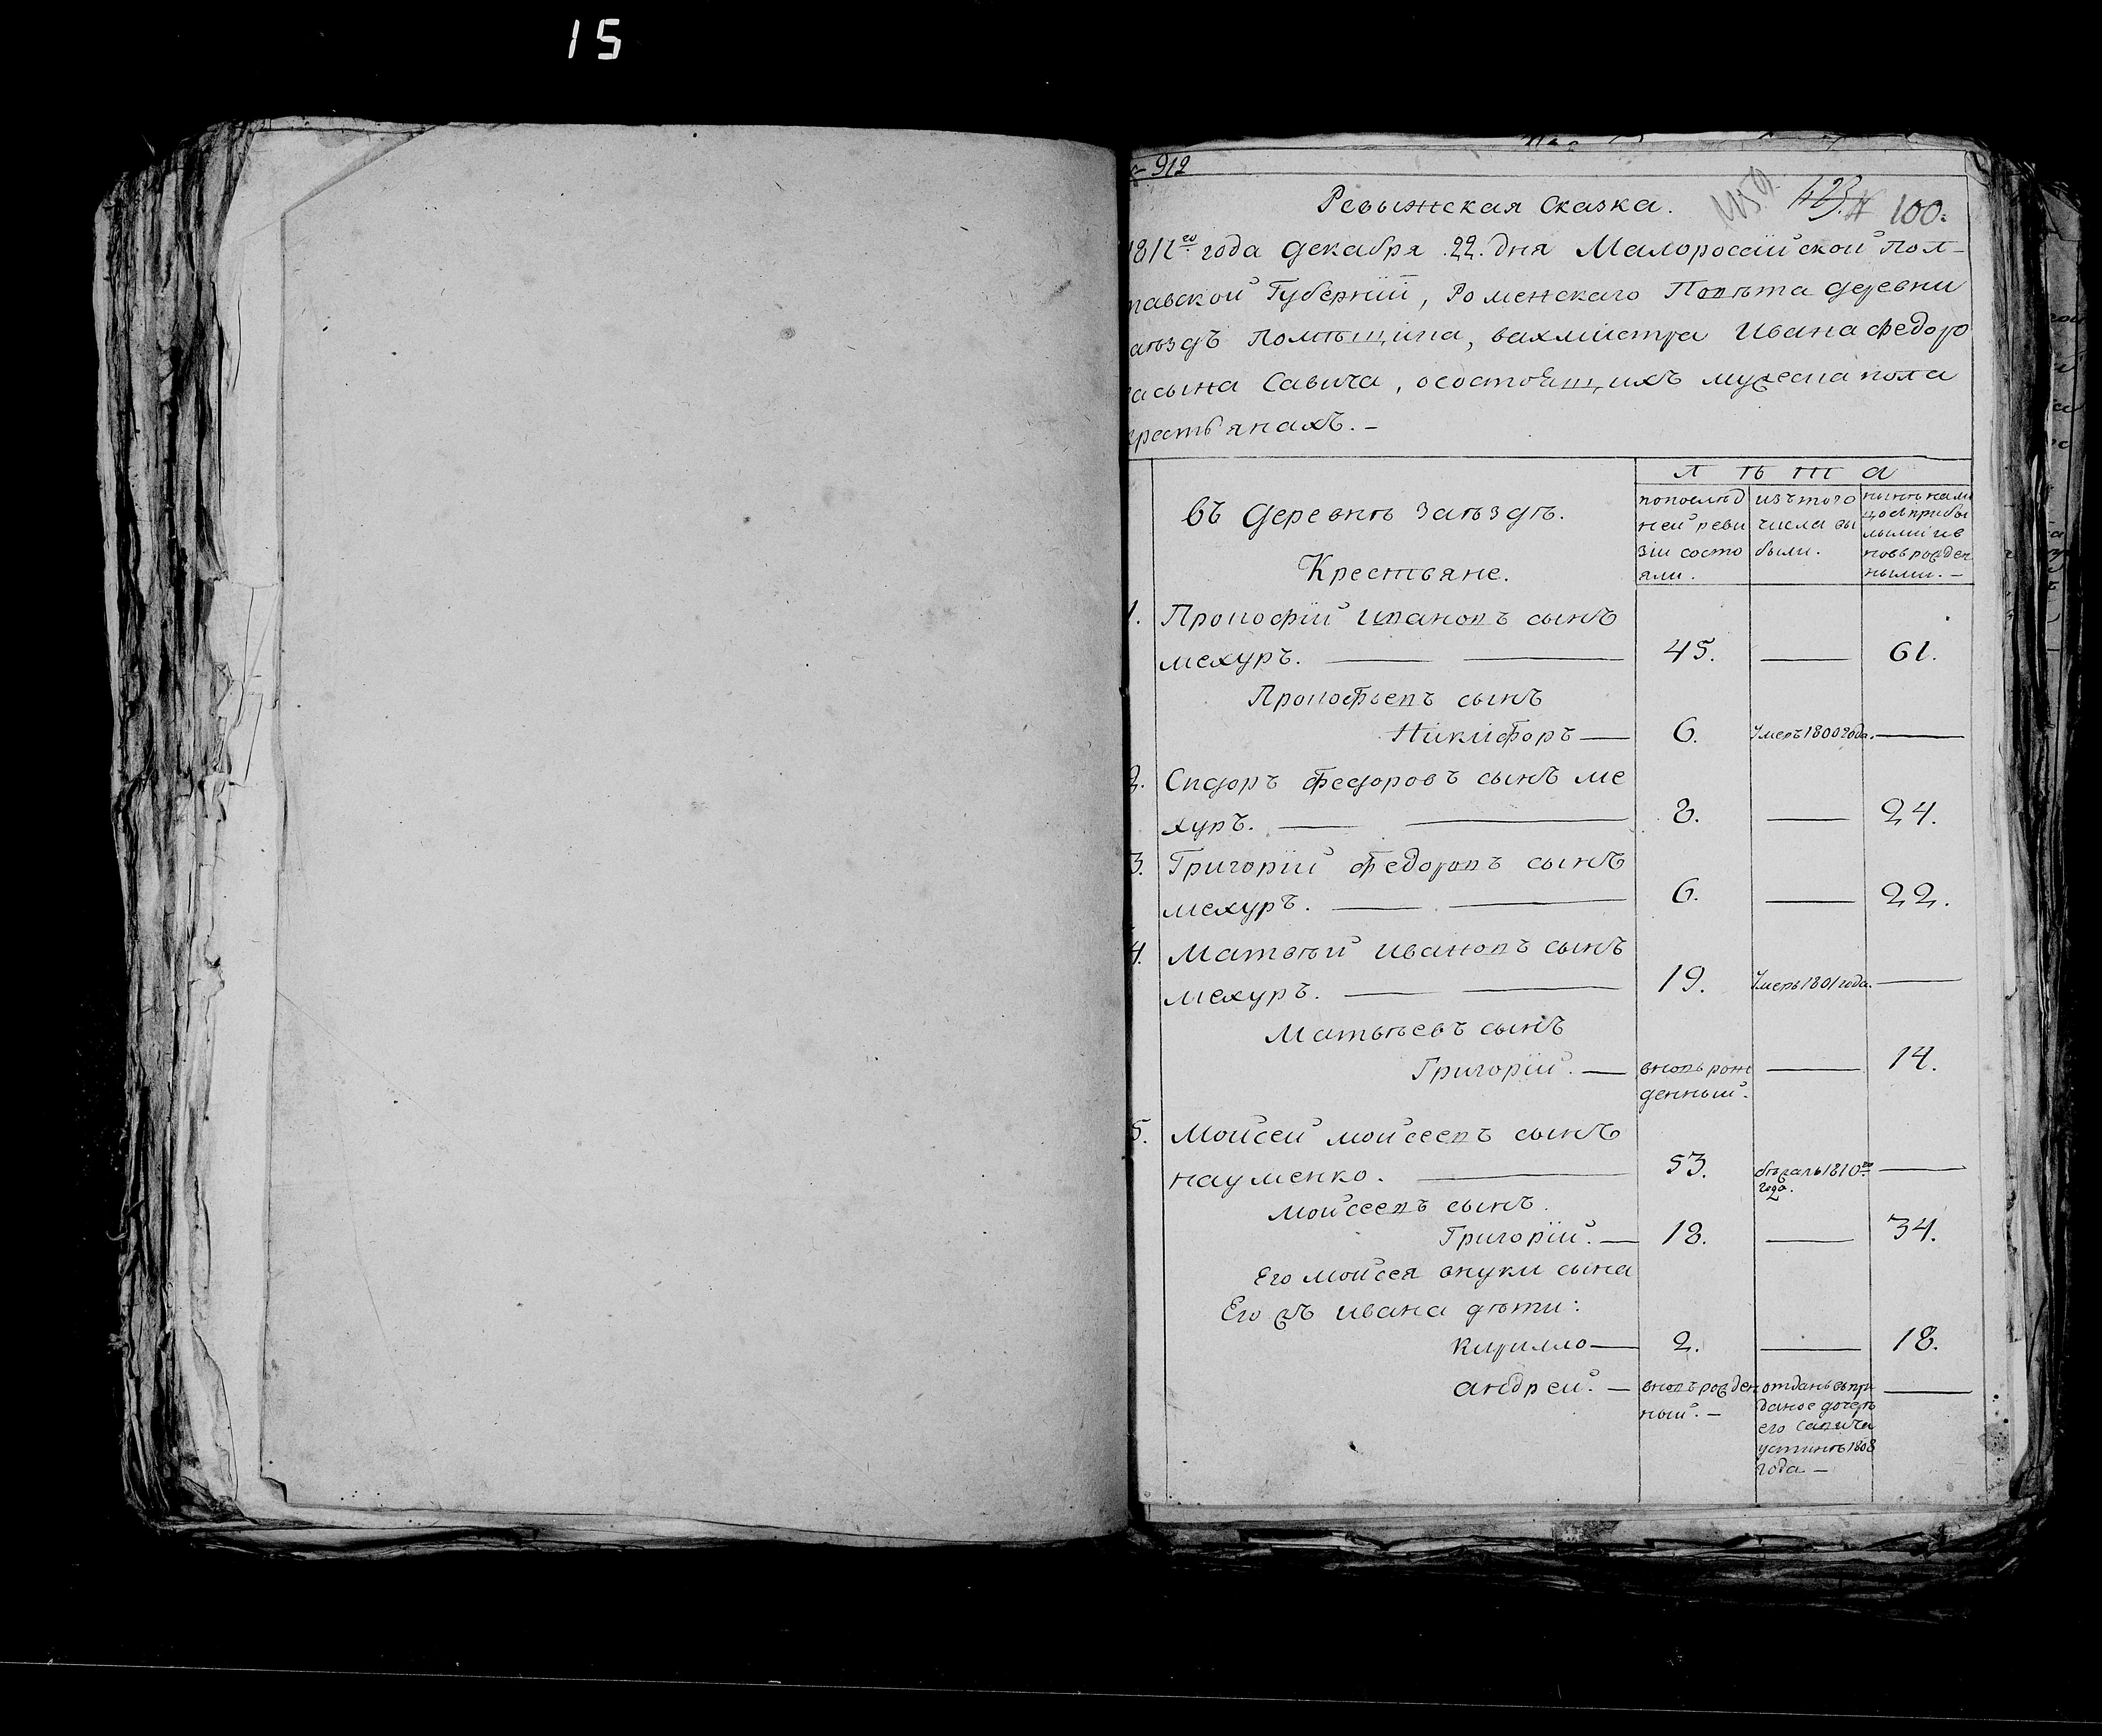 15
912
Ревыжская Сказка.
100.
1811го года декабря .22. дня Малороссїйской Пол-
тавской Губернїи, Роменскаго Повѣта деревни
аѣздъ Помѣщика, вахмистра Ивана Федоро
сына Савича, о состоящихъ мужеска пола
крестьянахъ. –
Лѣта
въ деревнѣ Заѣздѣ.
Крестьяне.
по послѣд
ней реви
зїи состо
яли.
изъ того
числа вы
были.
нынѣ на ли
цо съ прибы
лыми и в
новь рожден
ными. –
1. Прокофїй Ивановъ сынъ
мехуръ. — — 45. — 61.
Прокофьевъ сынъ
Никифоръ — 6. Умеръ 1800 года. —
2. Сидоръ Федоровъ сынъ ме
хуръ. — — 8. — 24.
3. Григорїй Федоровъ сынъ
мехуръ. — — 6. — 22.
4. Матвѣй Ивановъ сынъ
мехуръ. — — 19. Умеръ 1801 года. —
Матвѣевъ сынъ
Григорїй. — вновь рож — 14.
денный.
5. Мойсей мойсеевъ сынъ
науменко. — 53. бѣжалъ 1810го —
года.
мойсеевъ сынъ.
Григорїй. — 18. — 34.
Его мойсея внуки сына
Его жъ ивана дѣти:
Кирилло — 2. — 18.
андрей. — вновь рожден
ный. –
отданъ въ при
даное дочерѣ
его Савича
устинѣ 1808
года –
—